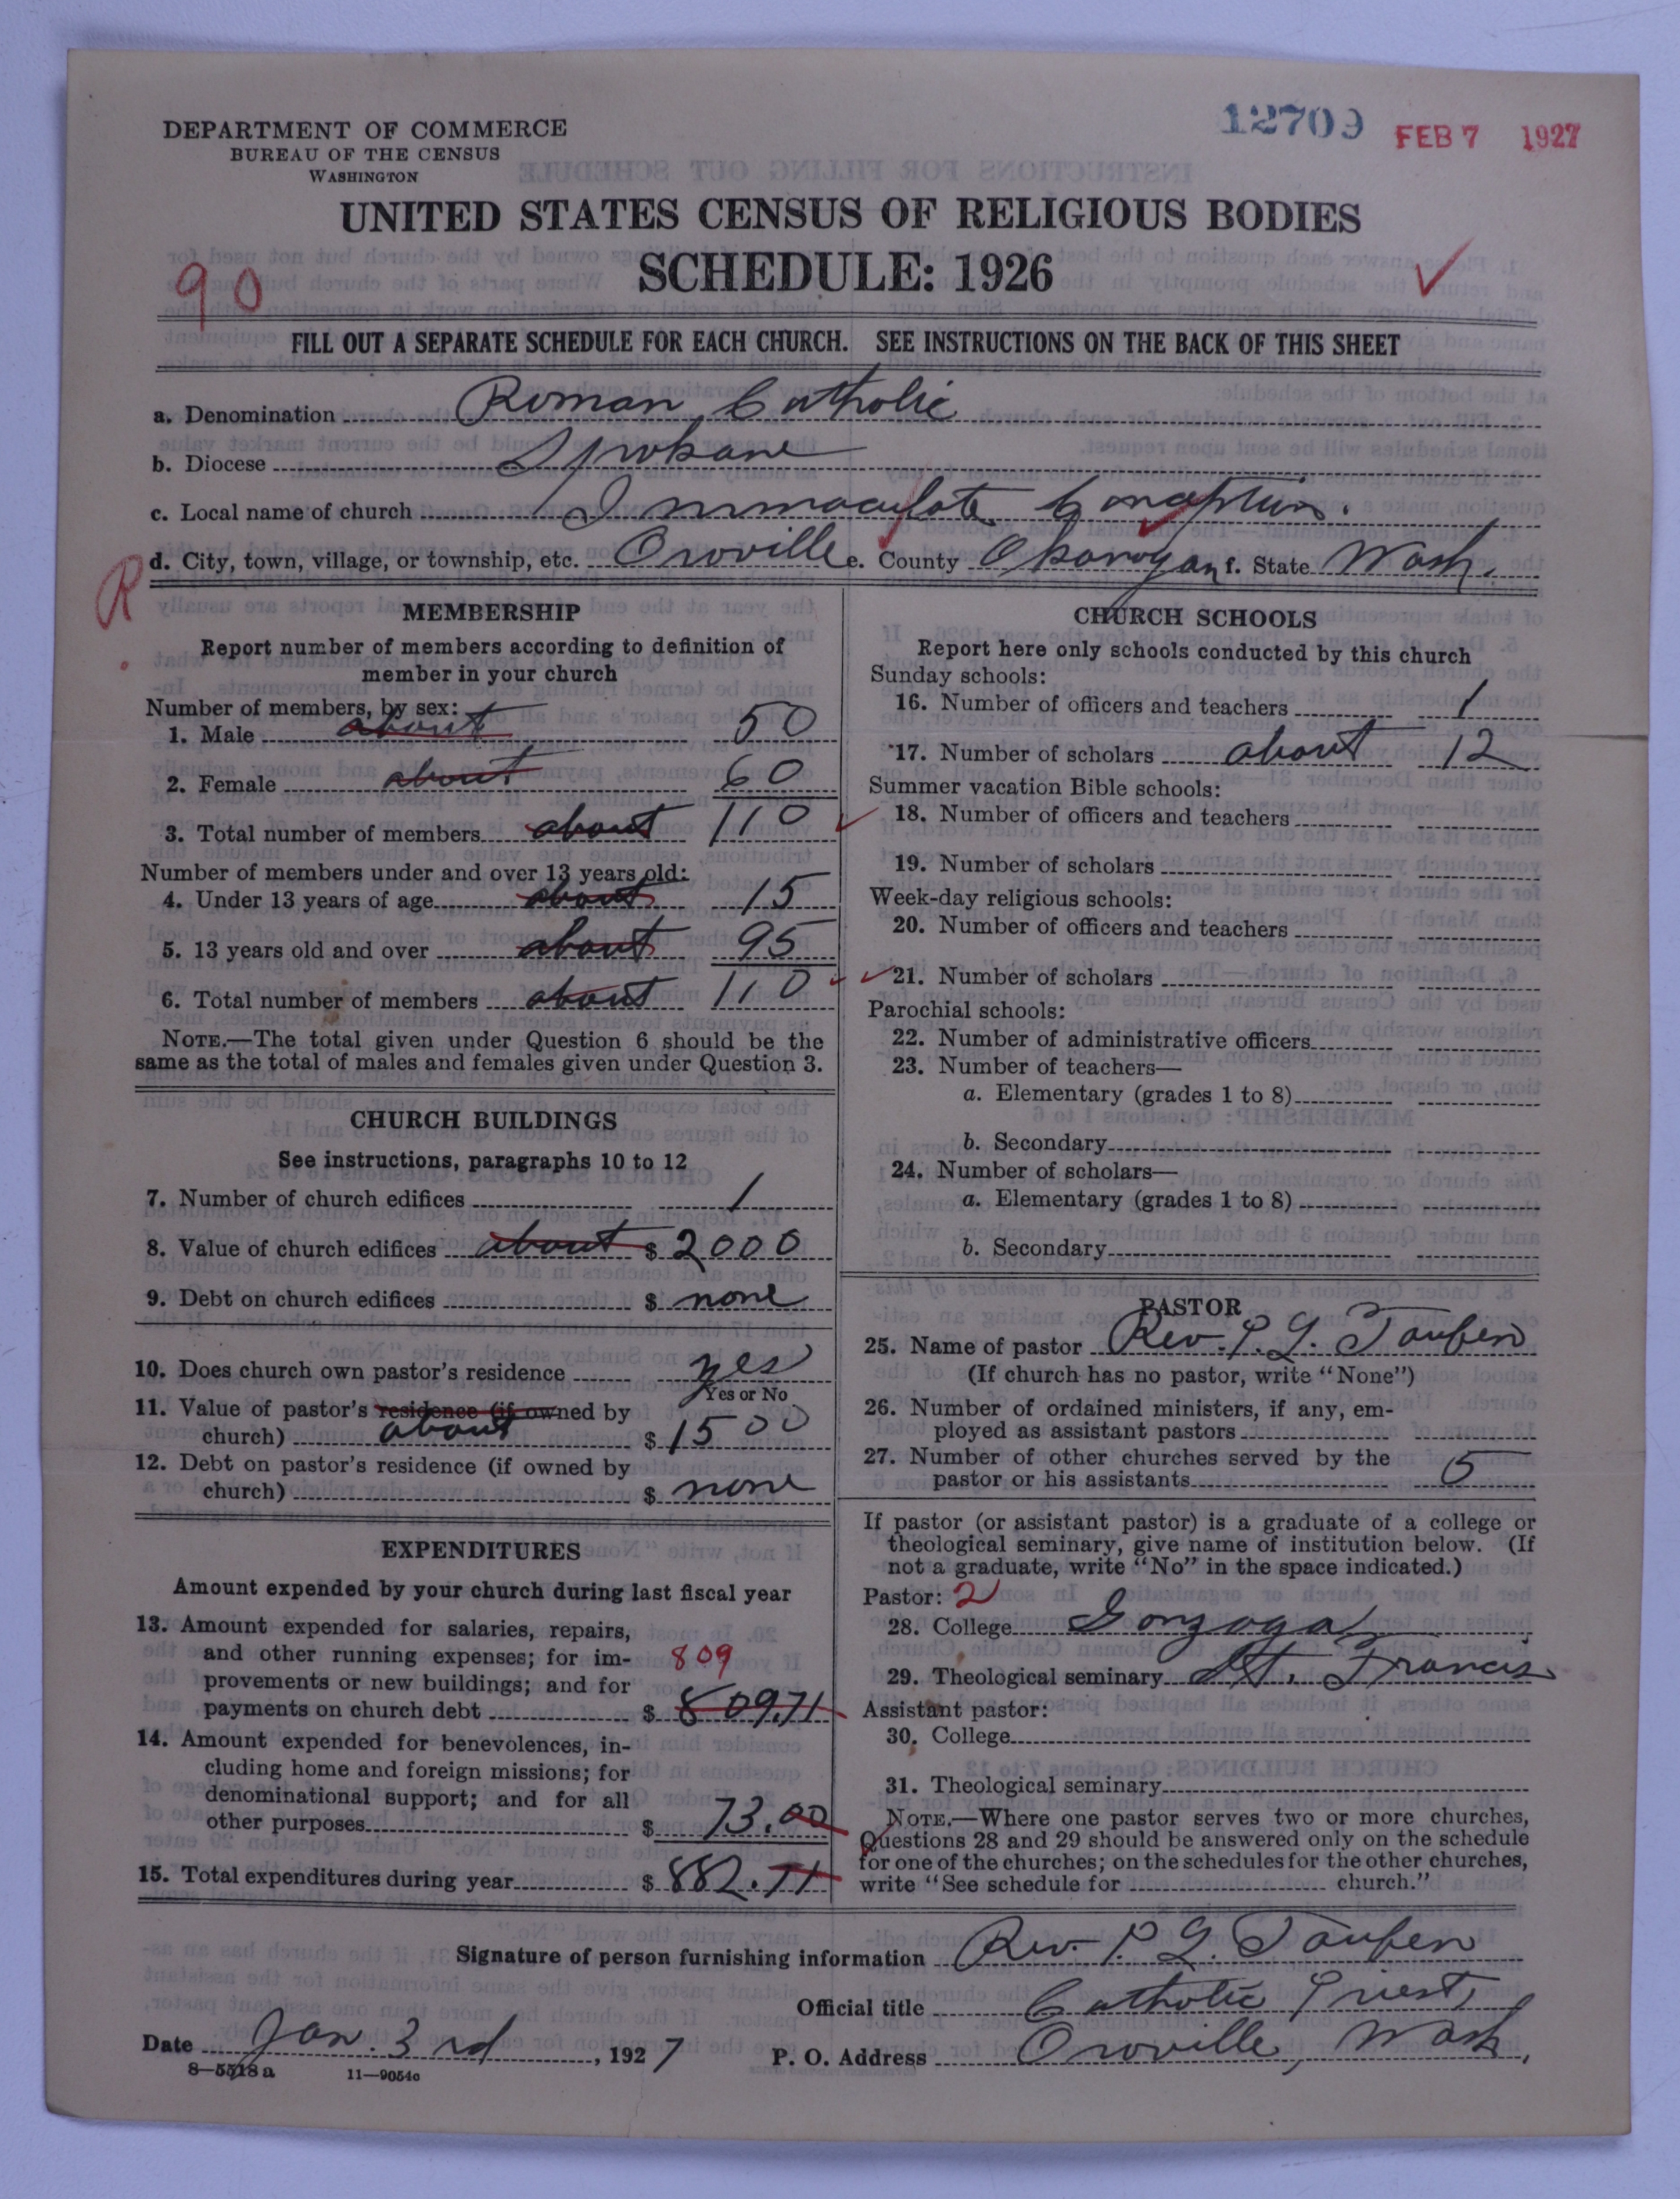 12709 FEB 7 1927
DEPARTMENT OF COMMERCE
BUREAU OF THE CENSUS
WASHINGTON
UNITED STATES CENSUS OF RELIGIOUS BODIES
SCHEDULE: 1926
90
FILL OUT A SEPARATE SCHEDULE FOR EACH CHURCH. SEE INSTRUCTIONS ON THE BACK OF THIS SHEET
a. Denomination Roman Catholic
b. Diocese Spokane
c. Local name of church Immaculate Conception.
R
d. City, town, village, or township, etc. Oroville e. County Okanogan f. State Wash.
MEMBERSHIP
Report number of members according to definition of
member in your church
Number of members, by sex:
1. Male about 50
2. Female about 60
3. Total number of members about 110
Number of members under and over 13 years old:
4. Under 13 years of age about 15
5. 13 years old and over about 95
6. Total number of members about 110
NOTE.—The total given under Question 6 should be the
same as the total of males and females given under Question 3.
CHURCH BUILDINGS
See instructions, paragraphs 10 to 12
7. Number of church edifices 1
8. Value of church edifices about $ 2000
9. Debt on church edifices $ none
10. Does church own pastor's residence yes
Yes or No
11. Value of pastor's residence (if owned by
church) about $ 1500
12. Debt on pastor's residence (if owned by
church) $ none
EXPENDITURES
Amount expended by your church during last fiscal year
13. Amount expended for salaries, repairs,
and other running expenses; for im- 809
provements or new buildings; and for
payments on church debt $ 809.71
14. Amount expended for benevolences, in-
cluding home and foreign missions; for
denominational support; and for all
other purposes $ 73.00
15. Total expenditures during year $ 882.71
CHURCH SCHOOLS
Report here only schools conducted by this church
Sunday schools:
16. Number of officers and teachers 1
17. Number of scholars about 12
Summer vacation Bible schools:
18. Number of officers and teachers
19. Number of scholars
Week-day religious schools:
20. Number of officers and teachers
21. Number of scholars
Parochial schools:
22. Number of administrative officers
23. Number of teachers—
a. Elementary (grades 1 to 8)
b. Secondary
24. Number of scholars—
a. Elementary (grades 1 to 8)
b. Secondary
PASTOR
25. Name of pastor Rev. P. G.
(If church has no pastor, write "None")
26. Number of ordained ministers, if any, em-
ployed as assistant pastors
27. Number of other churches served by the
pastor or his assistants 5
If pastor (or assistant pastor) is a graduate of a college or
theological seminary, give name of institution below. (If
not a graduate, write "No" in the space indicated.)
Pastor: 2
28. College Gonzaga
29. Theological seminary St. Francis
Assistant pastor:
30. College
31. Theological seminary
NOTE.—Where one pastor serves two or more churches,
Questions 28 and 29 should be answered only on the schedule
for one of the churches; on the schedules for the other churches,
write "See schedule for church."
Signature of person furnishing information Rev. P. G.
Official title Catholic Priest,
Date Jan. 3rd, 1927 P. O. Address Oroville, Wash.
8—5518a 11—9054c